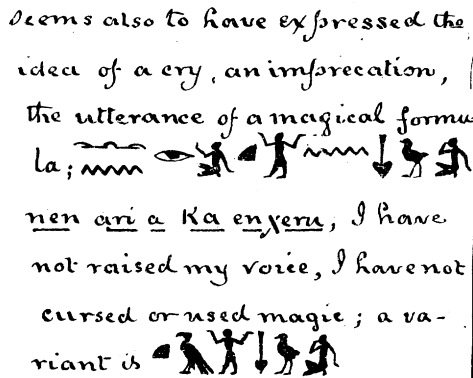 Seems also to have expressed the
idea of a cry, an imprecation,
the utterance of a magical formu
la;
nen ari a Ka enχeru, I have
not raised my voice, I have not
cursed or used magic; a va-
riant is